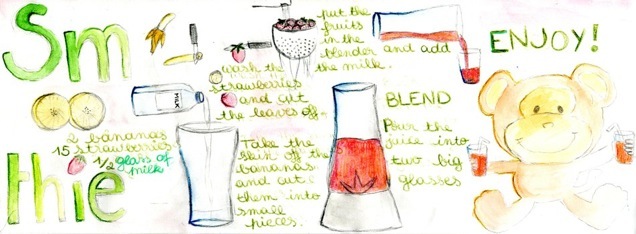 Sm
thie
MILK
2 bananas
15 strawberries
1/2 glass of
milk
wash the
strawberries
and cut
the leaves off.
Take the
skin off the
bananas
and cut
them into
small
pieces.
put the
fruits
in the
blender and add
the milk.
BLEND
Pour the
juice into
two big
glasses
ENJOY!